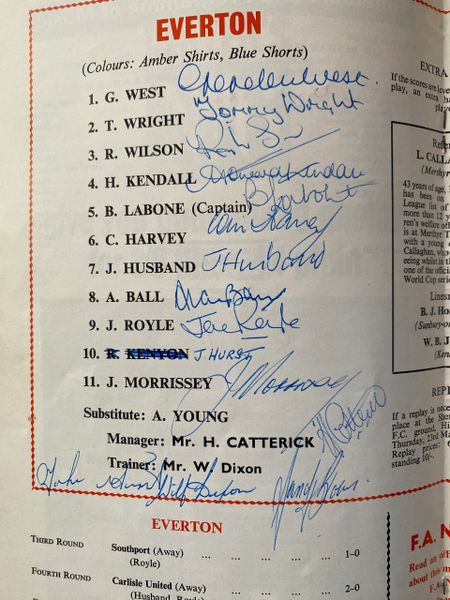 EVERTON
(Colours: Amber Shirts, Blue Shorts)
1. G. WEST Gordon West.
2. T. WRIGHT Tommy Wright
3. R. WILSON
4. H. KENDALL Howard Kendall
5. B. LABONE (Captain) B Labone
6. C. HARVEY Harvey
7. J. HUSBAND J Husband
8. A. BALL Alan Ball
9. J. ROYLE Joe Royle
10. R. KENYON J HURST
11. J. MORRISSEY J Morrissey
Substitute: A. YOUNG
Manager: Mr. H. CATTERICK H Catterick
Trainer: Mr. W. Dixon
John Hurst Wilf Dixon Sandy Brown
EVERTON
THIRD ROUND Southport (Away) ... ... ... 1–0
(Royle)
FOURTH ROUND Carlisle United (Away) ... ... 2–0
(Husband, Royle)
EXTRA
If the scores are level
play, an extra
play
L. CALLA
(Merthyr
43 years of age,
has been on
League list of
more than 12 y
ren's welfare of
is at Merthyr T
with a young
Callaghan, who
eeing whilst in th
one of the offici
World Cup serie
Linesm
B. J. Ho
(Sunbury-o
W. B. J
(Kent
REPL
If a replay is nece
place at the She
F.C. ground, Hi
Thursday, 23rd Ma
Replay prices:
standing 10/-.
F.A. N
Read an
about this m